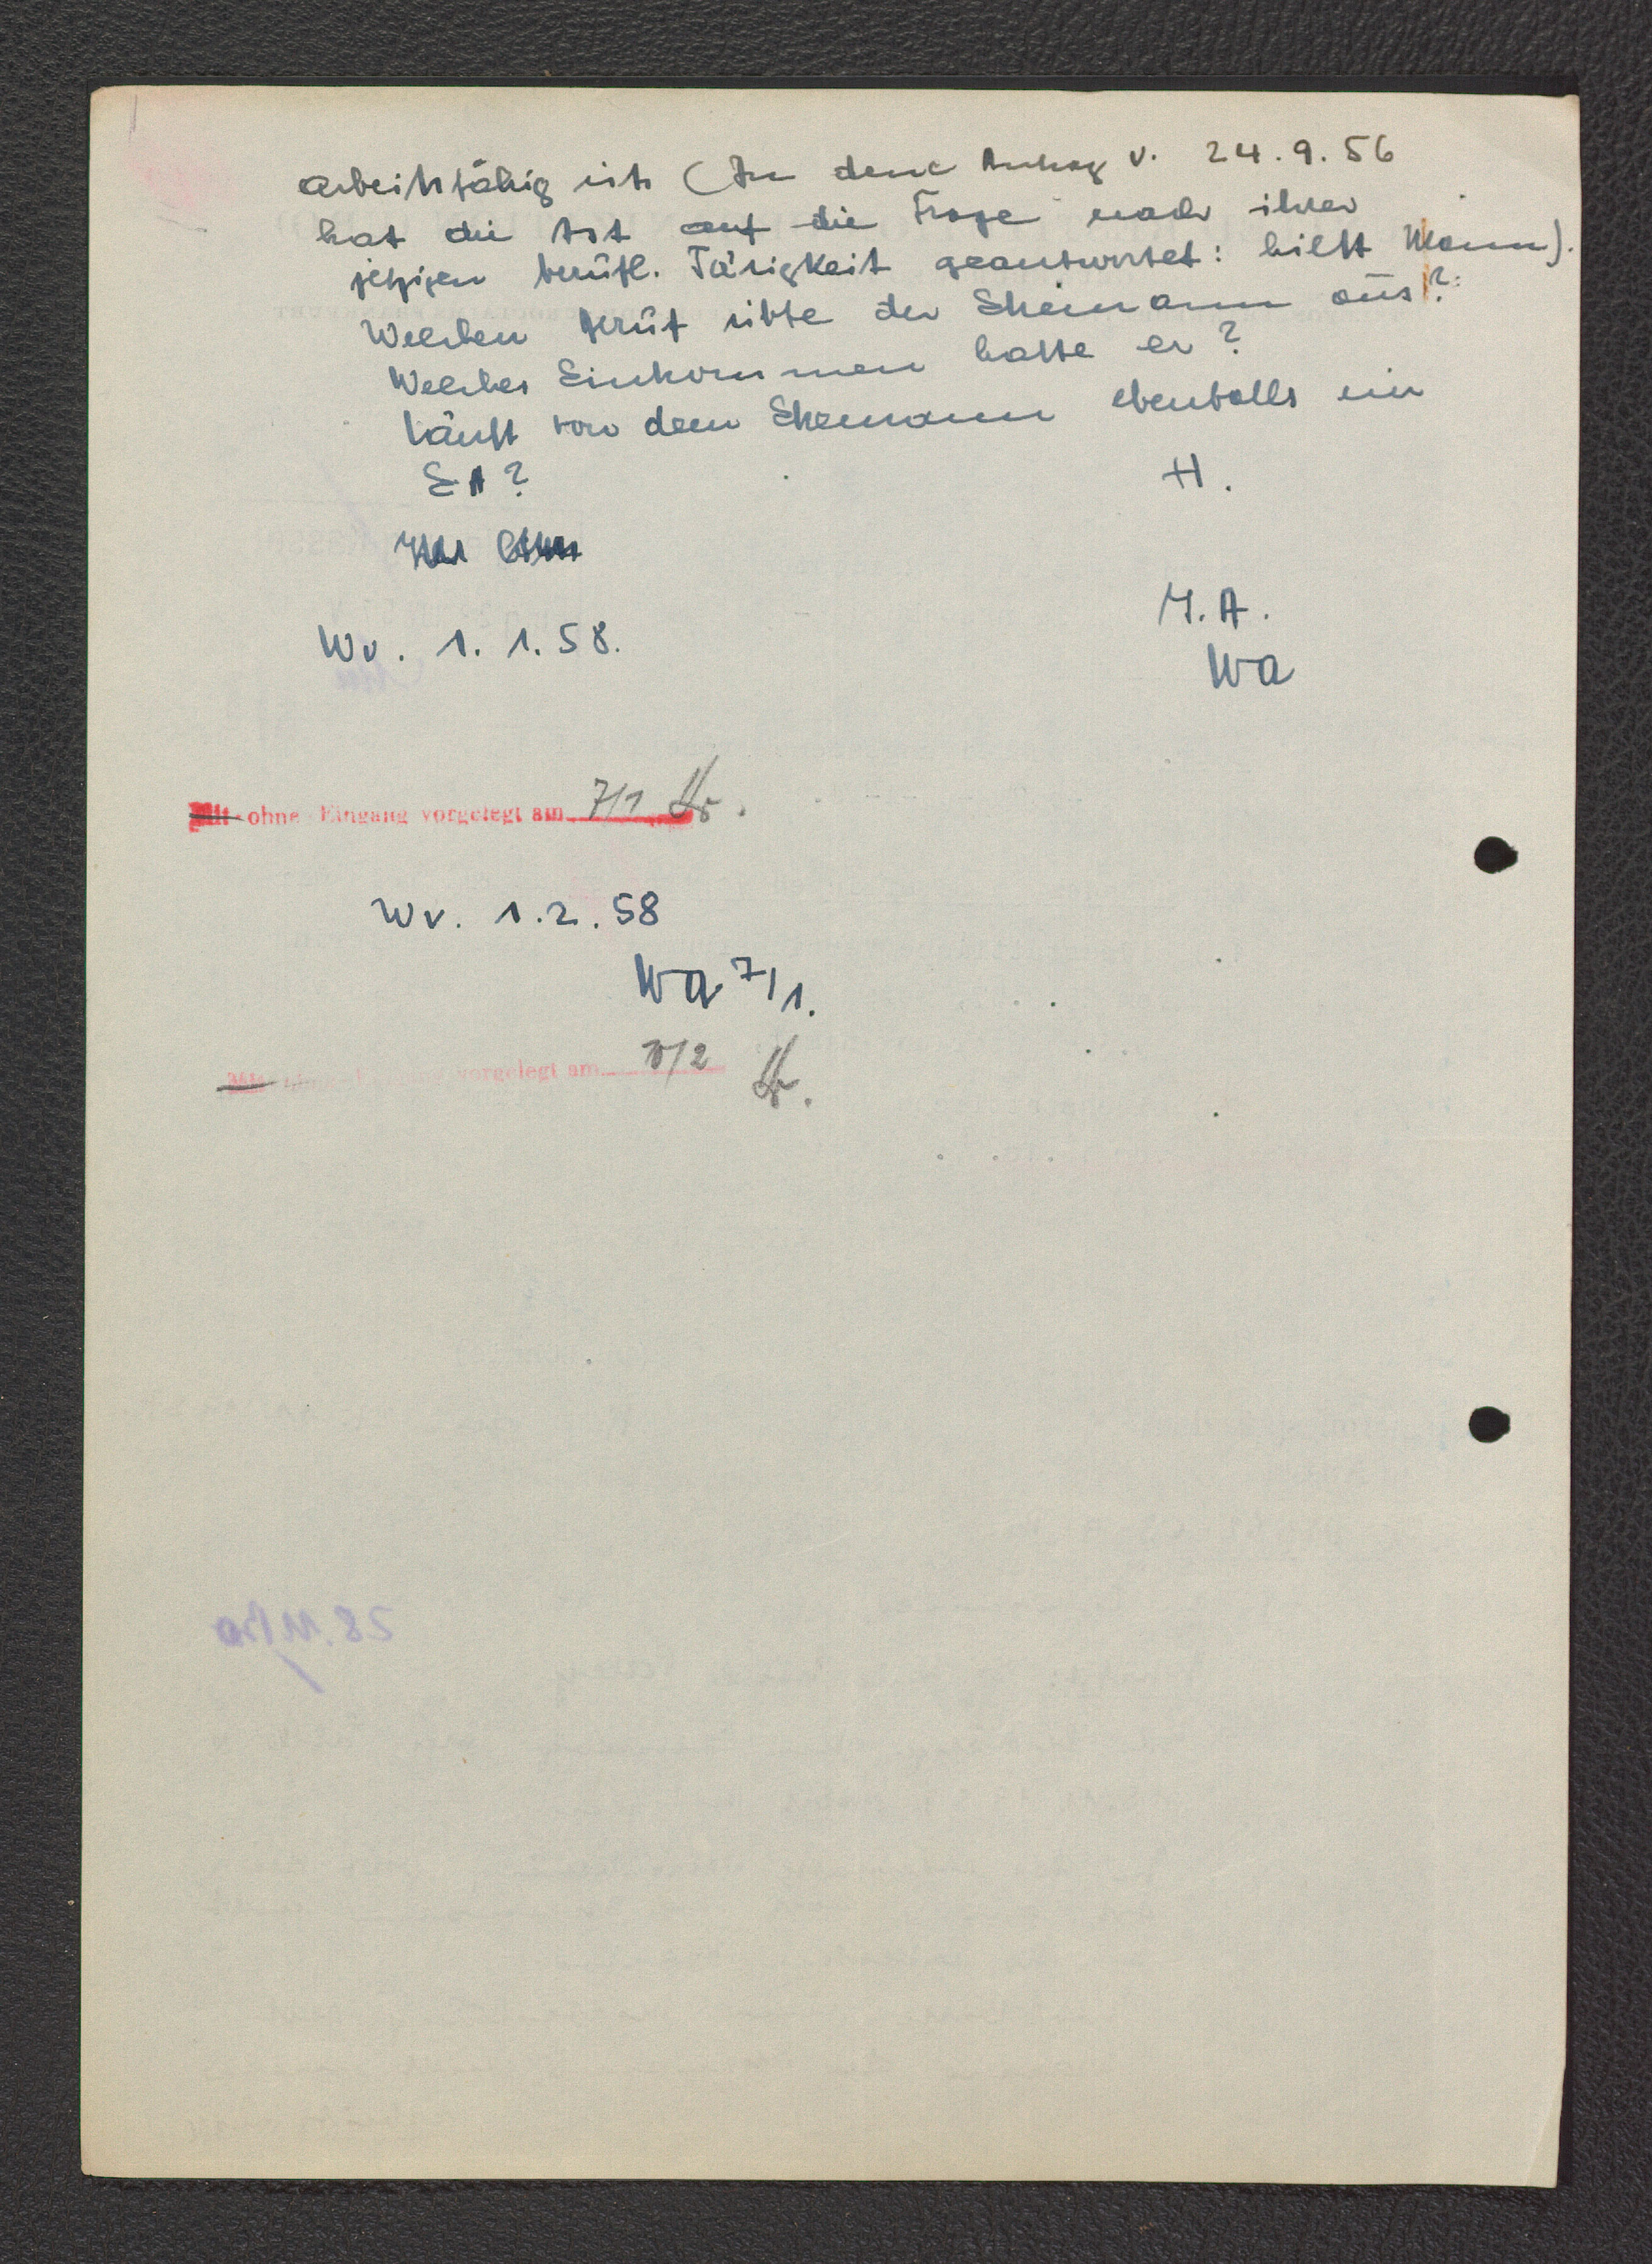 arbeitsfähig ist. (In dem Antrag v. 24.9.56
hat die Ast auf die Frage nach ihrer
jetzigen berufl. Tätigkeit geantwortet: hilft Mann).
Welchen Beruf übte der Ehemann aus?
Welches Einkommen hatte er?
Läuft von dem Ehemann ebenfalls ein
EA?
H.
Wv. 1.1.58.
I.A.
Wa
Mit-ohne Eingang vorgelegt am 7/1
Wv. 1.2.58
Wa 7/1.
vorgelegt am /2